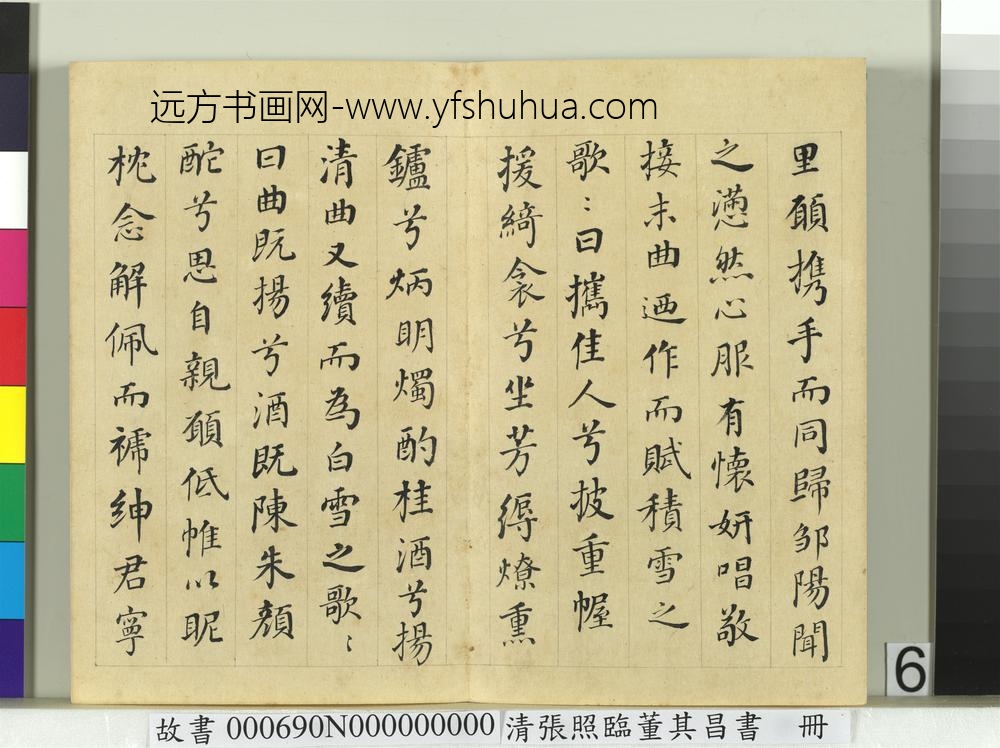 远方书画网-www.yfshuhua.com
里願攜手而同歸鄒陽聞
之懣然心服有懷妍唱敬
接末曲迺作而賦積雪之
歌〻曰攜佳人兮披重幄
援綺衾兮坐芳縟燎熏
鑪兮炳明燭酌桂酒兮揚
清曲又續而為白雪之歌〻
曰曲既揚兮酒既陳朱顏
酡兮思自親願低帷以昵
枕念解佩而褫紳君寧
6
故書 000690N000000000 清張照臨董其昌書 冊